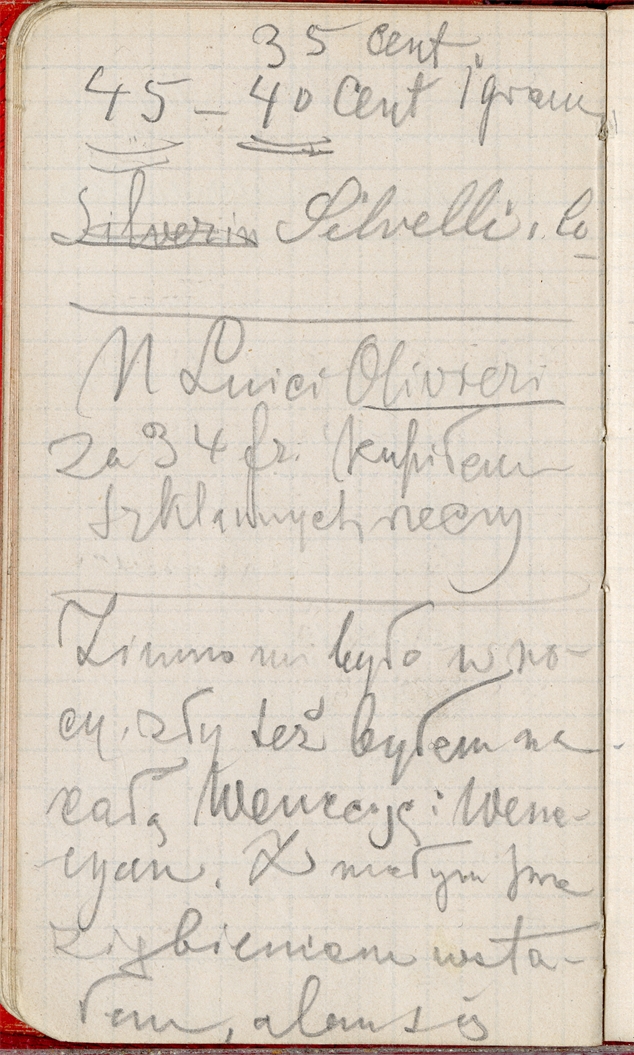 35 cent.
45 – 40 cent 1 gram
Silverin Silvelli i Co
N Luici Olivieri
za 34 fr. kupiłem
szklannych rzeczy
Zimno mi było w no-
cy, zły też byłem na
całą Wenecyę i Wene-
cyan. Z małym prze
ziębieniem wsta-
łem,